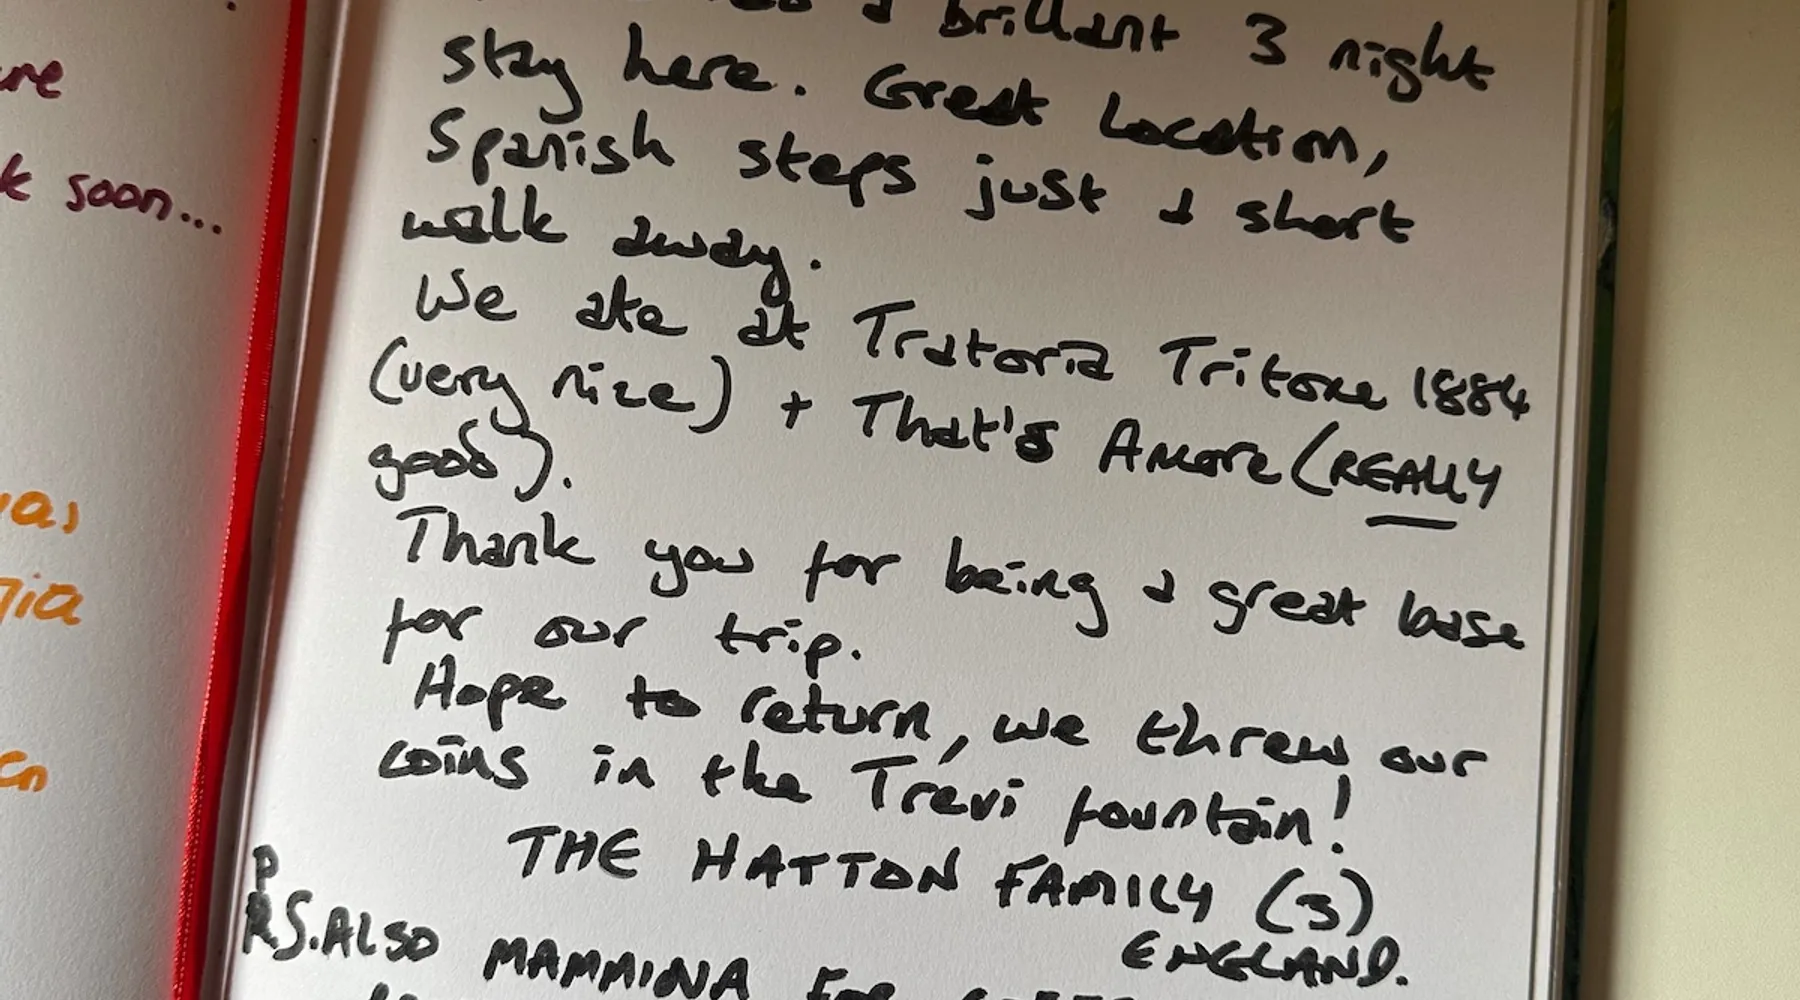 a brilliant 3 night
stay here. Great Location,
Spanish steps just a short
walk away.
We ate at Tratoria Tritone 1884
(very nice) + That's Amore (REALLY
good).
Thank you for being a great base
for our trip.
Hope to return, we threw our
coins in the Trevi fountain!
THE HATTON FAMILY (3)
ENGLAND.
P.S. ALSO MAMMINA FOR
k soon...